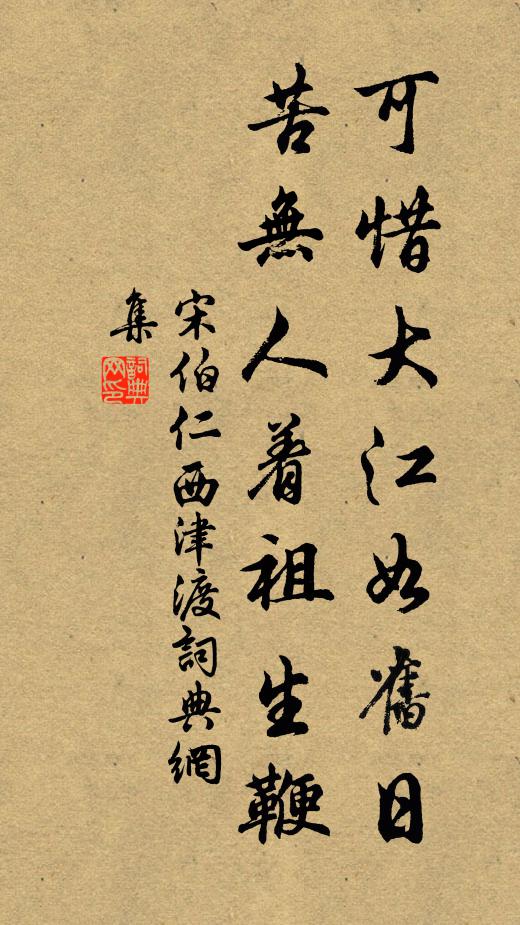 可惜大江如舊日
苦無人着祖生鞭
宋伯仁西津渡詞典網
集
詞典
网印